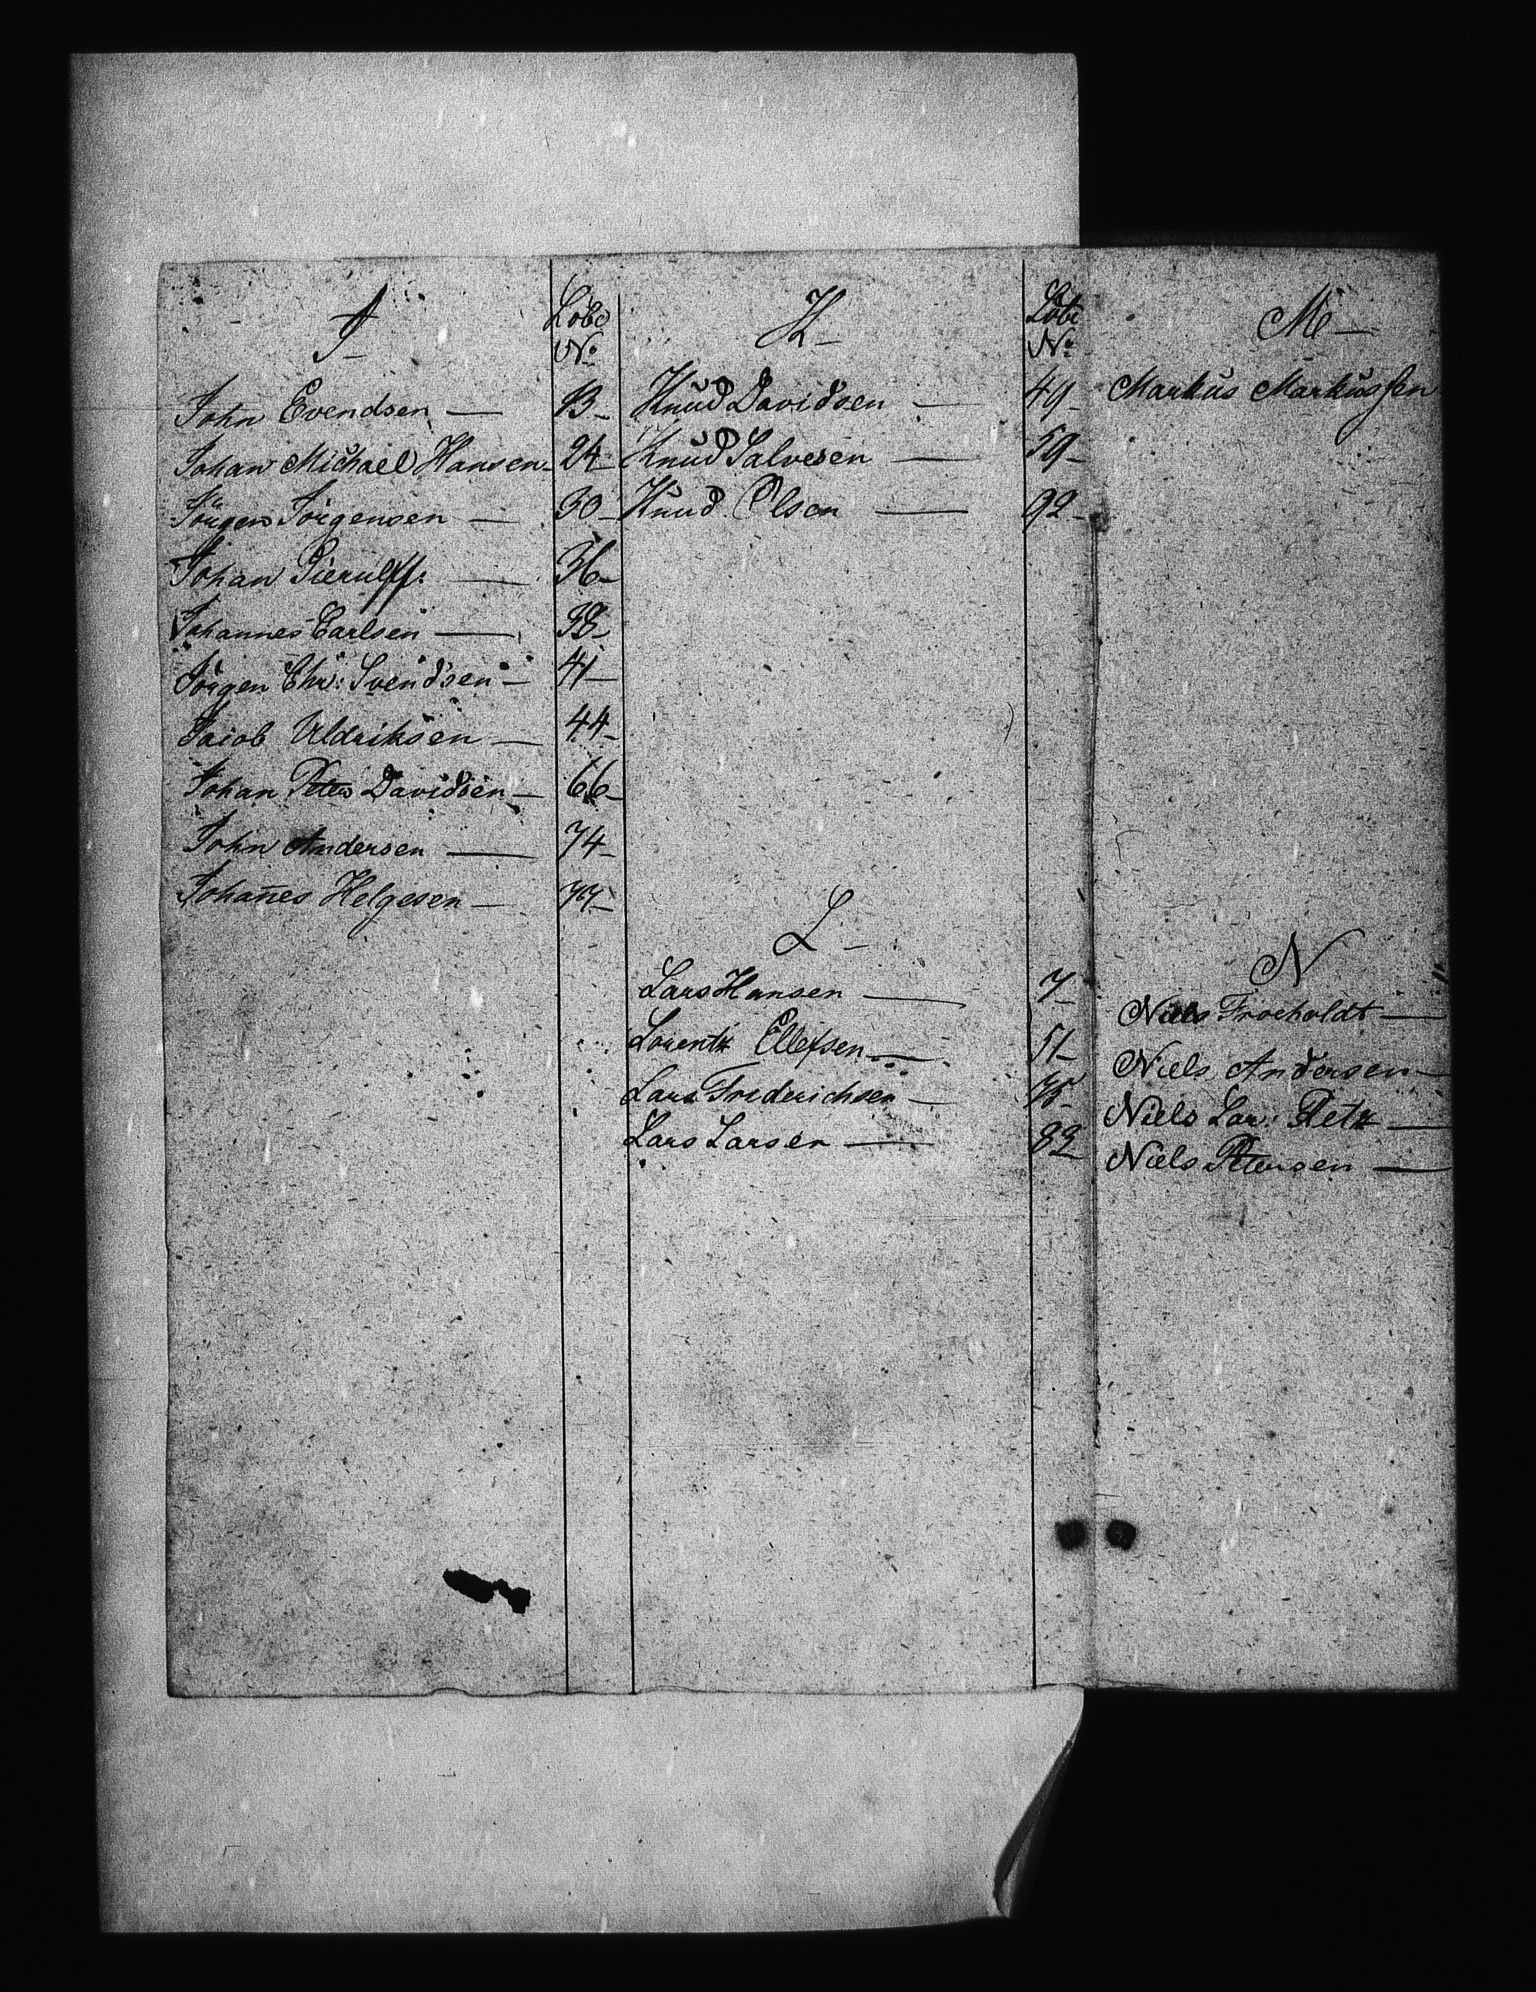 J
Löbe
No
John Evendsen — 13
Johan Michael Hansen 24
Jörgen Jörgensen — 30
Johan Pierulff — 36
Johannes Carlsen — 38
Jörgen Chr: Svendsen — 41
Jacob Uldriksen — 44
Johan Peter Davidsen — 66
John Andersen — 74
Johan̄es Helgesen — 77
K
Löbe
No
Knud Davidsen — 49
Knud Salvesen — 59
Knud Olsen — 92
L
Lars Hansen — 7
Lorentz Ellefsen — 51
Lars Friderichsen — 75
Lars Larsen — 82
M
Markus Markussen
N
Niels Froeholdt —
Niels Andersen —
Niels Lar: Retz —
Niels Petersen —